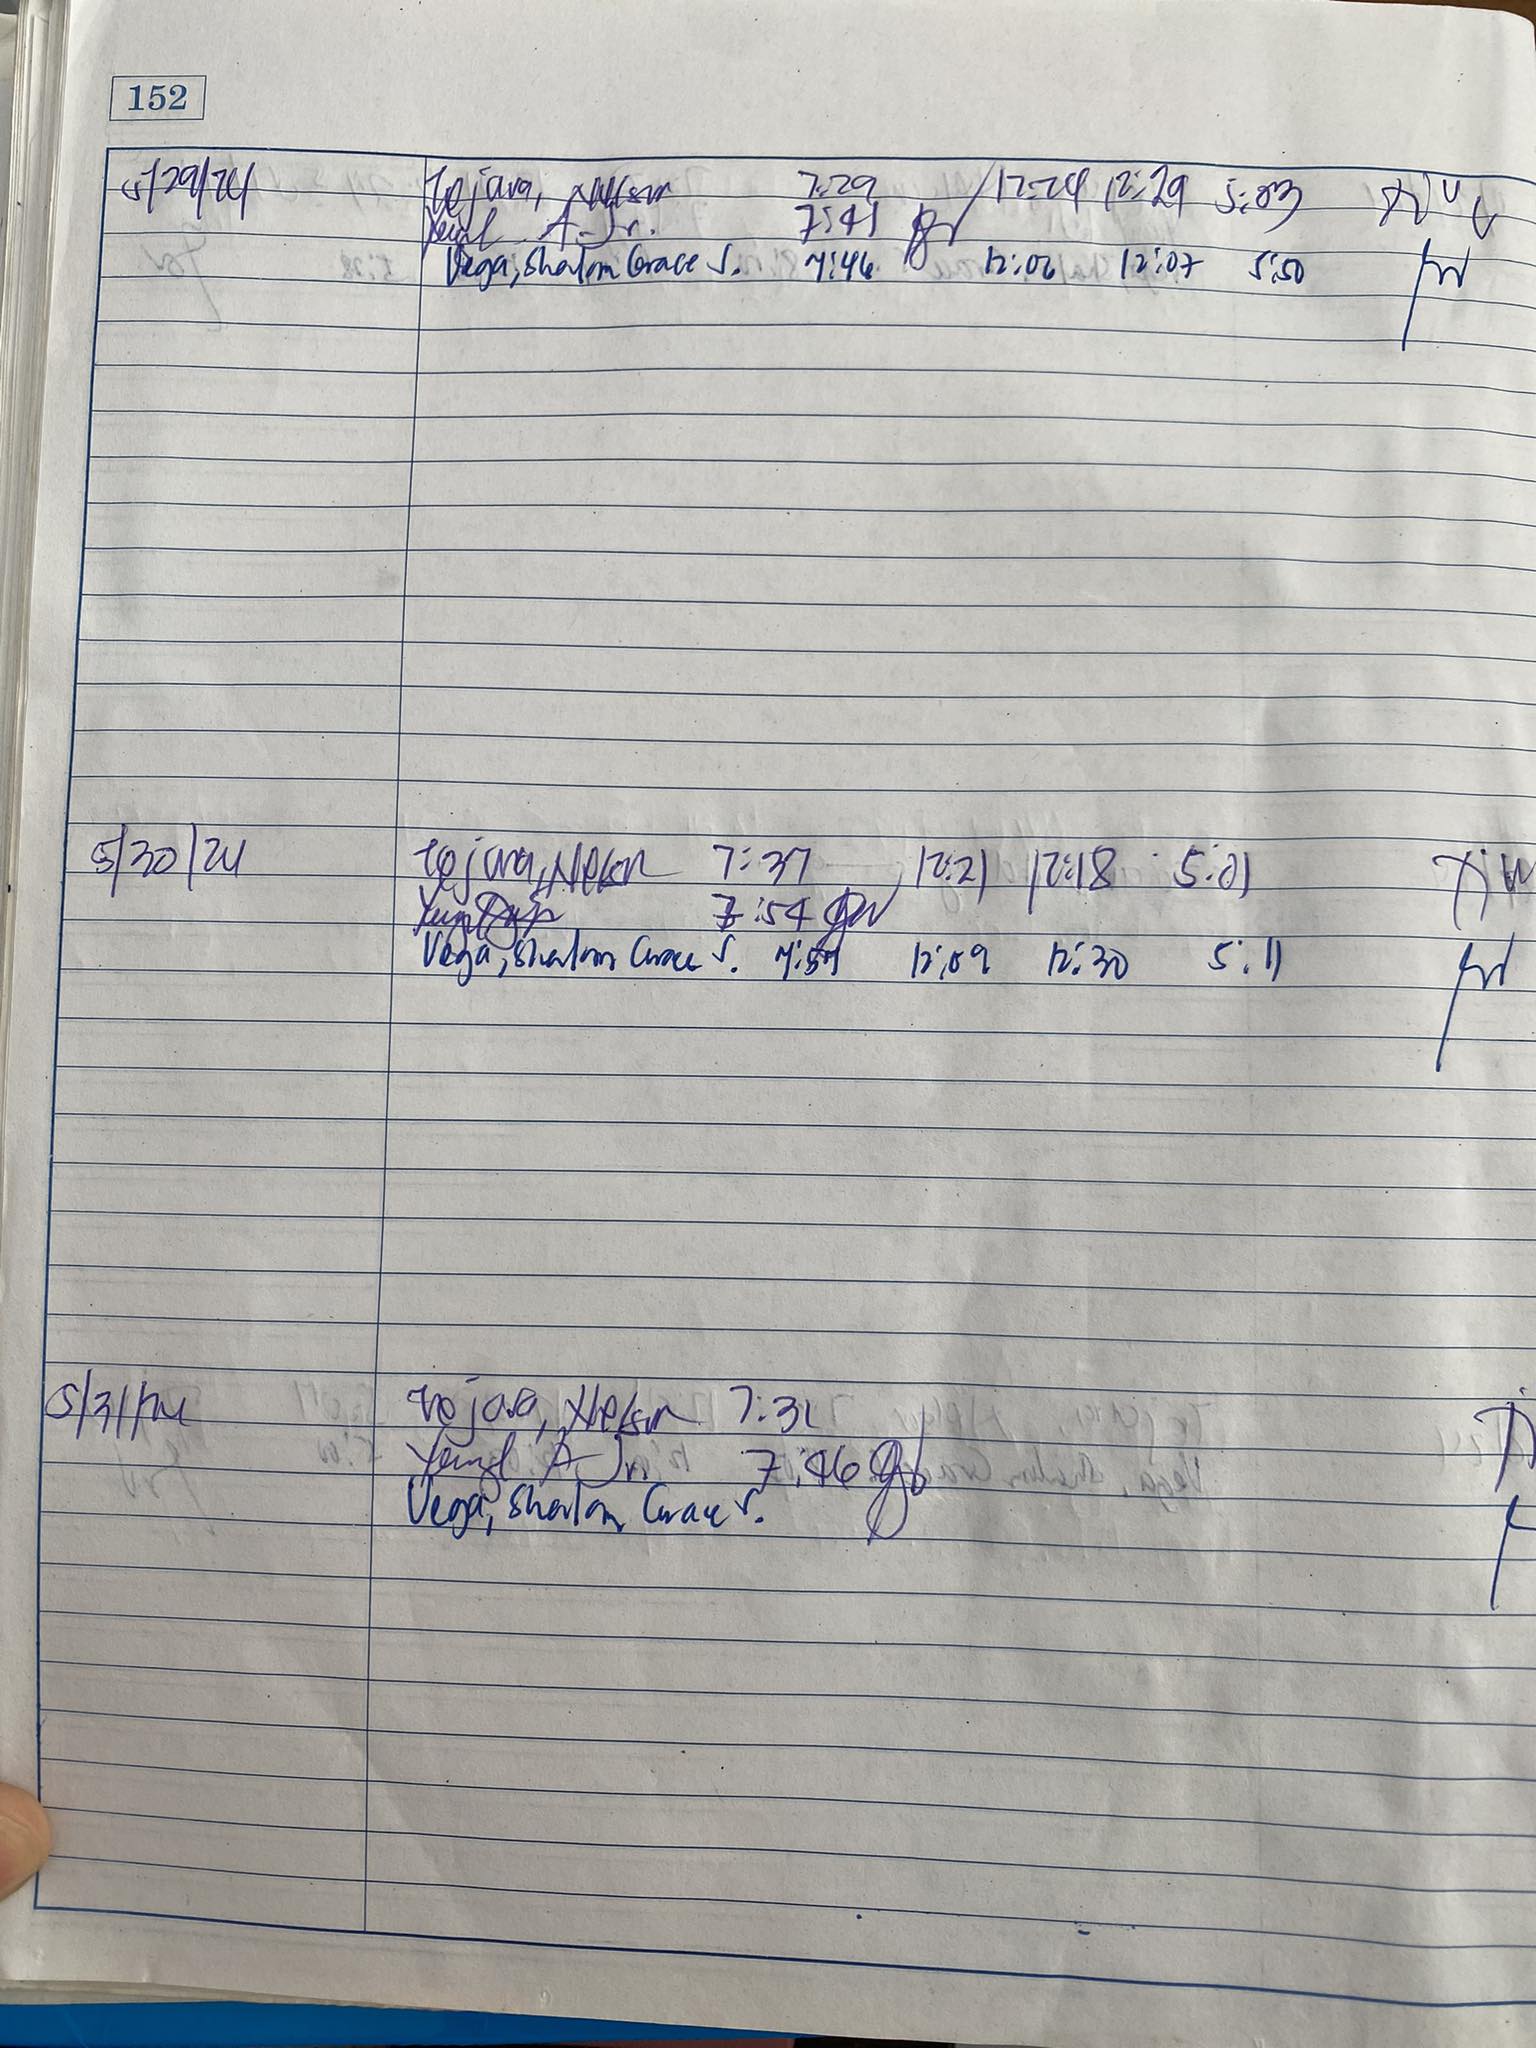 152
5/29/24 Tejara, Nelson 7:29 12:24 12:29 5:03
A. Jr. 7:41
Vega, Shalom Grace S. 7:46 12:06 12:07 5:50
5/30/24 Tejara, Nelson 7:37 12:21 12:18 5:01
7:54
Vega, Shalom Grace S. 7:57 12:09 12:30 5:11
5/31/24 Tejara, Nelson 7:31
A. Jr. 7:46
Vega, Shalom Grace S.